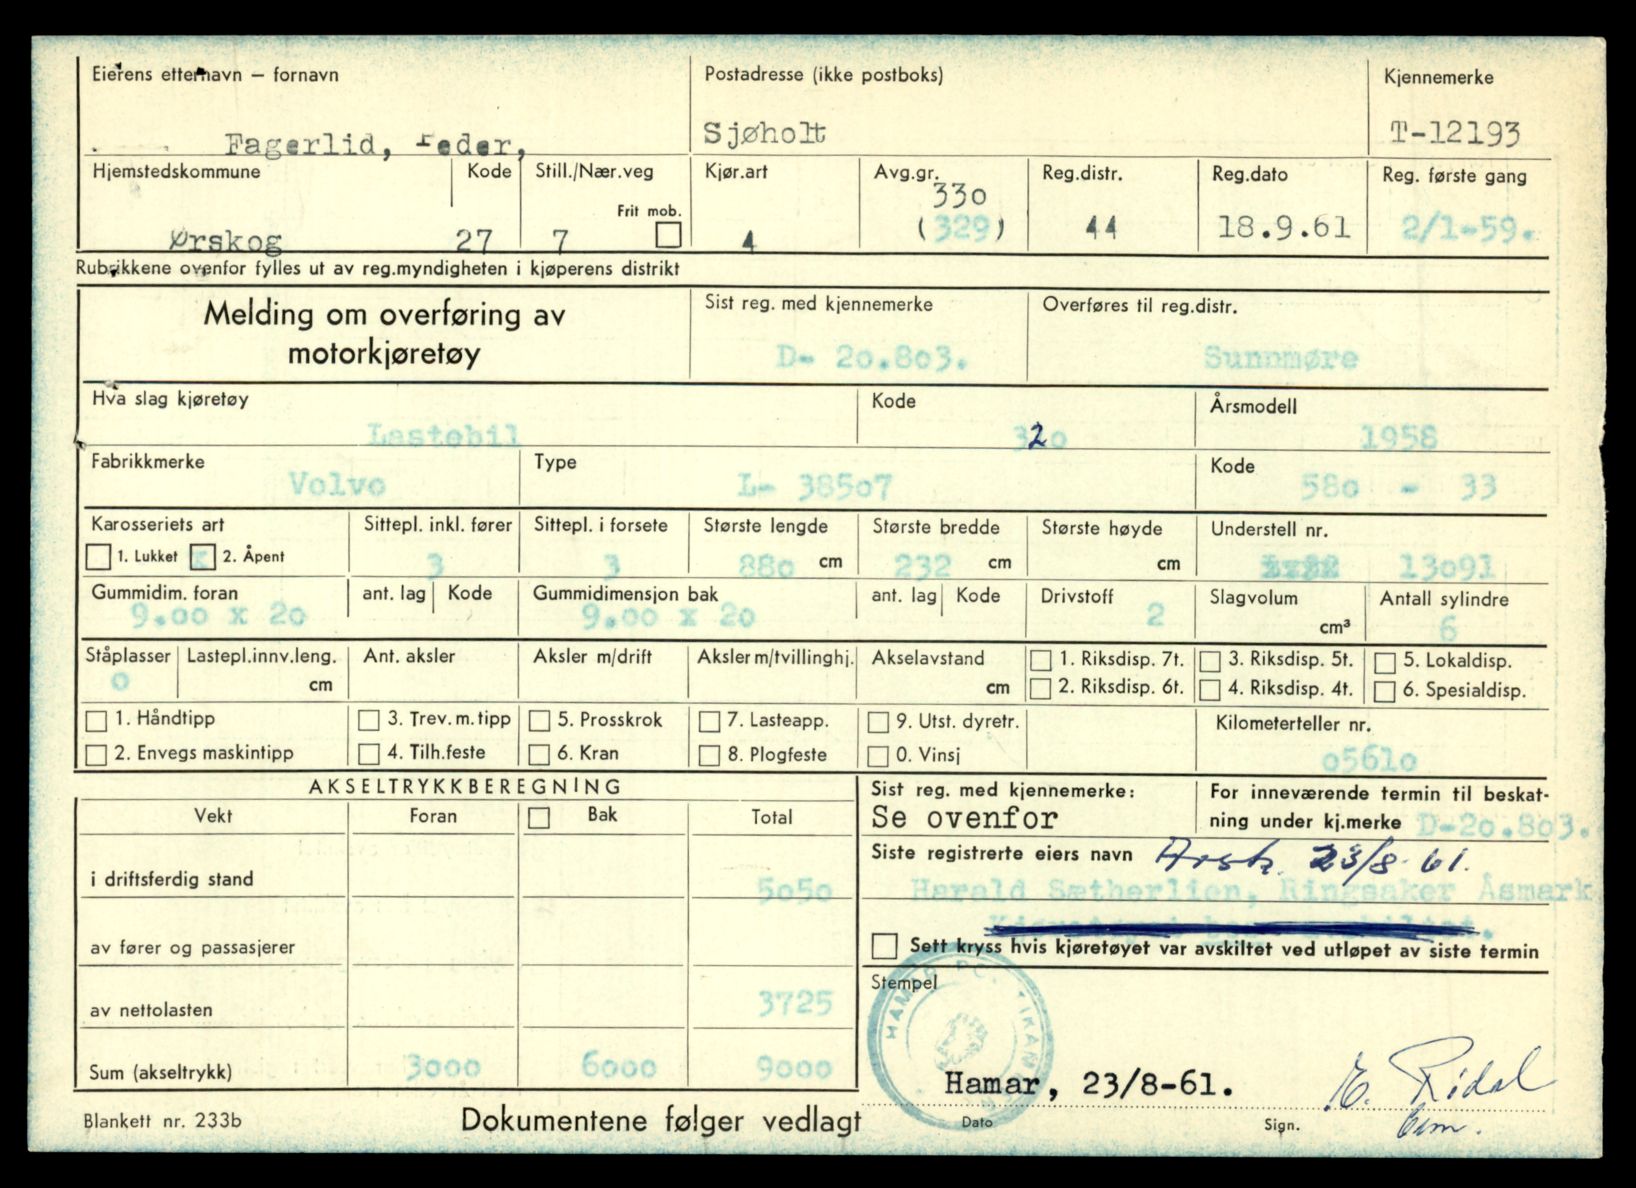 Eierens etternavn – fornavn
Postadresse (ikke postboks)
Kjennemerke
Fagerlid, Peder,
Sjøholt
T-12193
Hjemstedskommune
Kode
Still./Nær.veg
Kjør.art
Avg.gr.
Reg.distr.
Reg.dato
Reg. første gang
Frit mob.
330
(329)
Ørskog
27
7
4
44
18.9.61
2/1-59.
Rubrikkene ovenfor fylles ut av reg.myndigheten i kjøperens distrikt
Melding om overføring av
motorkjøretøy
Sist reg. med kjennemerke
Overføres til reg.distr.
D- 20.803.
Sunnmøre
Hva slag kjøretøy
Kode
Årsmodell
Lastebil
320
1958
Fabrikkmerke
Type
Kode
Volvo
L- 38507
580 - 33
Karosseriets art
Sittepl. inkl. fører
Sittepl. i forsete
Største lengde
Største bredde
Største høyde
Understell nr.
1. Lukket
x
2. Åpent
3
3
880 cm
232 cm
cm
13091
Gummidim. foran
ant. lag
Kode
Gummidimensjon bak
ant. lag
Kode
Drivstoff
Slagvolum
Antall sylindre
9.00 x 20
9.00 x 20
2
cm³
6
Ståplasser
Lastepl.innv.leng.
Ant. aksler
Aksler m/drift
Aksler m/tvillinghj.
Akselavstand
1. Riksdisp. 7t.
3. Riksdisp. 5t.
5. Lokaldisp.
0
cm
cm
2. Riksdisp. 6t.
4. Riksdisp. 4t.
6. Spesialdisp.
1. Håndtipp
3. Trev. m. tipp
5. Prosskrok
7. Lasteapp.
9. Utst. dyretr.
Kilometerteller nr.
2. Envegs maskintipp
4. Tilh.feste
6. Kran
8. Plogfeste
0. Vinsj
05610
AKSELTRYKKBEREGNING
Vekt
Foran
Bak
Total
i driftsferdig stand
5050
av fører og passasjerer
av nettolasten
3725
Sum (akseltrykk)
3000
6000
9000
Sist reg. med kjennemerke:
Se ovenfor
For inneværende termin til beskat-
ning under kj.merke D-20.803.
Siste registrerte eiers navn
23/8-61.
Harald Sætherlien, Ringsaker Åsmark
Sett kryss hvis kjøretøyet var avskiltet ved utløpet av siste termin
Stempel
HAMAR
Hamar, 23/8-61.
E. Ridal
Dato
Sign.
Blankett nr. 233b
Dokumentene følger vedlagt